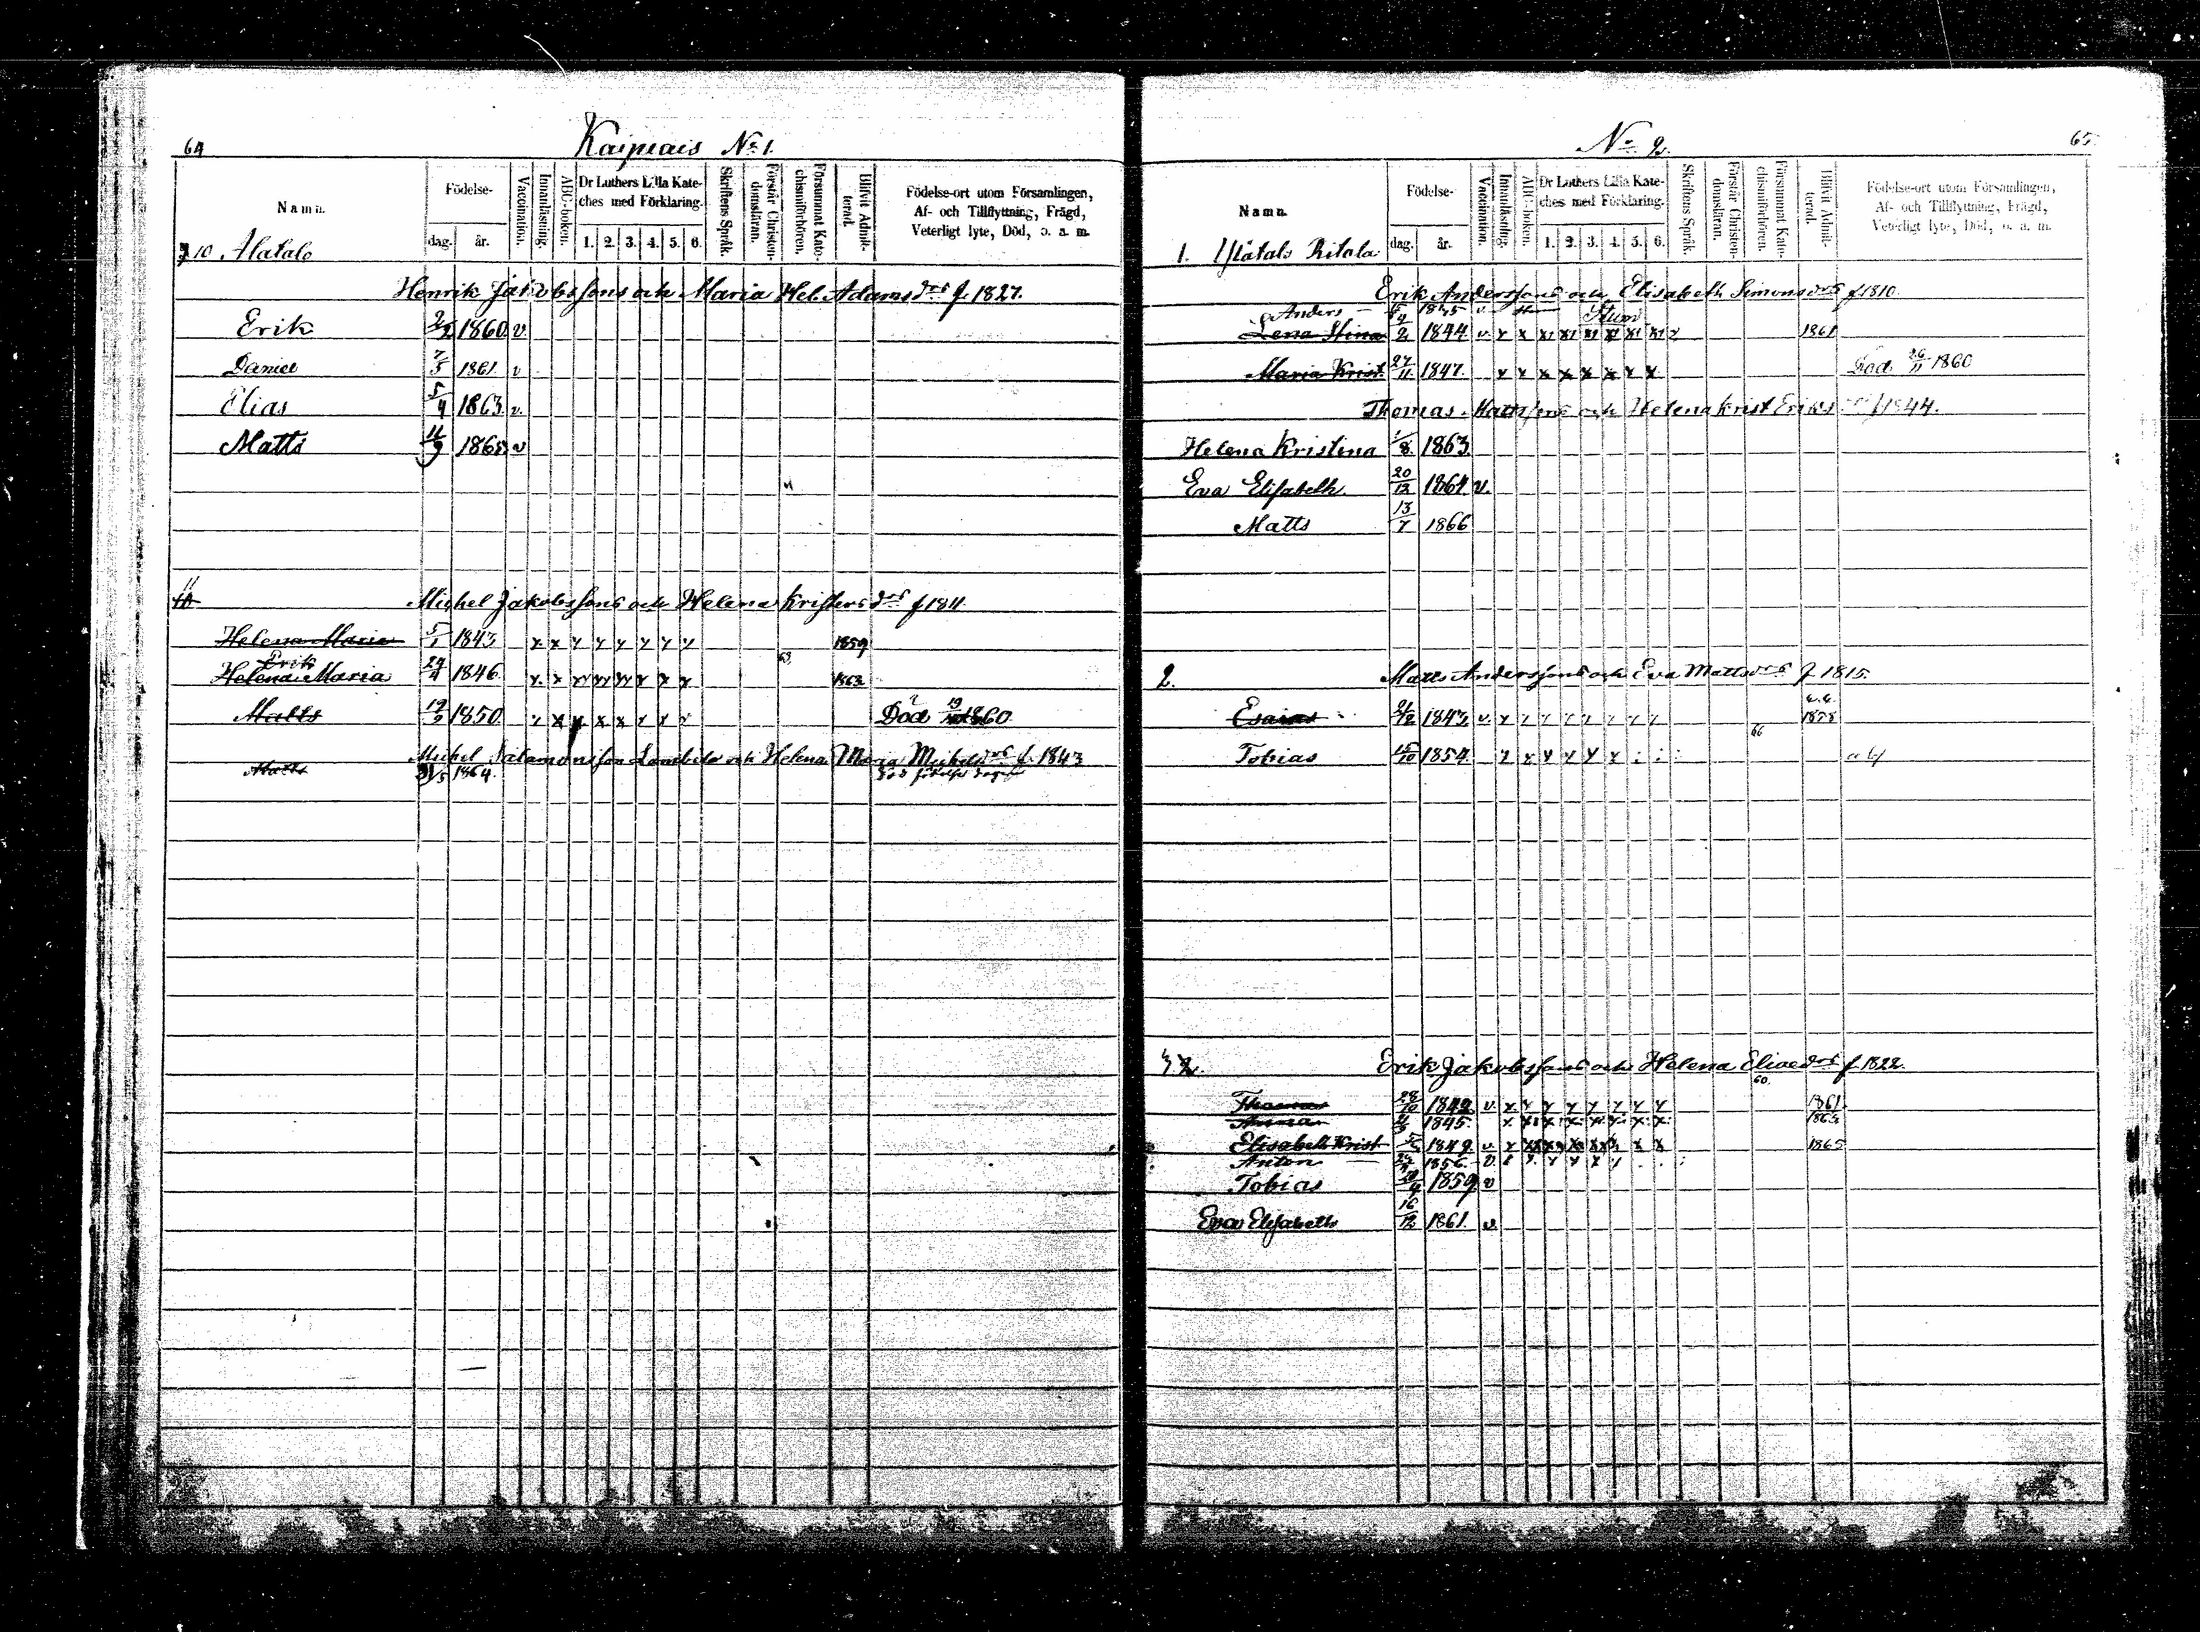 64
Kaipiais No 1.
Namn.
Födelse-
dag.
år.
Vaccination.
Innanläsning.
ABC-boken.
Dr Luthers Lilla Kate-
ches med Förklaring.
1. 2. 3. 4. 5. 6.
Skriftens Språk.
Förstår Christen-
domsläran.
Försummat Kate-
chismiförhören.
Blifvit Admit-
terad.
Födelse-ort utom Församlingen,
Af- och Tillflyttning, Frägd,
Veterligt lyte, Död, o. a. m.
10 Alatalo
Henrik Jakobssons och Maria Hel. Adamsdrs f 1827.
Erik 1860 v
Daniel 7/5 1861 v
Elias 5/4 1863 v.
Matts 11/9 1865 v
11
10
Michel Jakobssons och Helena Kristersdrs f 1811.
Helena Maria 5/1 1843 x x x x x x x x 1859
Erik
63
Helena Maria 1846 x x x x x x x x 1863
Matts 1850 x x x x x x x x Död 1860
Michel Salamonsson och Helena Maria Michelsdrs f. 1843
Matts 1864. död födelse dagen
No 2.
65
Namn.
Födelse-
dag.
år.
Vaccination.
Innanläsning.
ABC-boken.
Dr Luthers Lilla Kate-
ches med Förklaring.
1. 2. 3. 4. 5. 6.
Skriftens Språk.
Förstår Christen-
domsläran.
Försummat Kate-
chismiförhören.
Blifvit Admit-
terad.
Födelse-ort utom Församlingen,
Af- och Tillflyttning, Frägd,
Veterligt lyte, Död, o. a. m.
1. Ritala
Erik Anderssons och Elisabeth Simonsdrs f 1810.
Anders
Lena Stina 1844 v x x x x x x x x 1861
Maria Krist. 27/11 1847. x x x x x x x x Död 26/11 1860
Thomas Mattssons och Helena Krist Eriksdrs f 1844.
Helena Kristina 1/8 1863
Eva Elisabeth 20/12 1864 v.
Matts 13/7 1866
2. Matts Anderssons och Eva Mattsdrs f 1815.
Esaias 21/12 1843 v. x
66
Tobias 15/10 1854. x x x x x x
3 2. Erik Jakobssons och Helena Eliaedrs f 1822.
60.
Thomas 28/10 1842 v. x x x x x x x x 1861
Anna 1845. x x x x x x x x 1863
Elisabeth Krist 1849. v x x x x x x x x 1865
Anton 1856. v.
Tobias 1859 v
Eva Elisabeth 16/12 1861. v